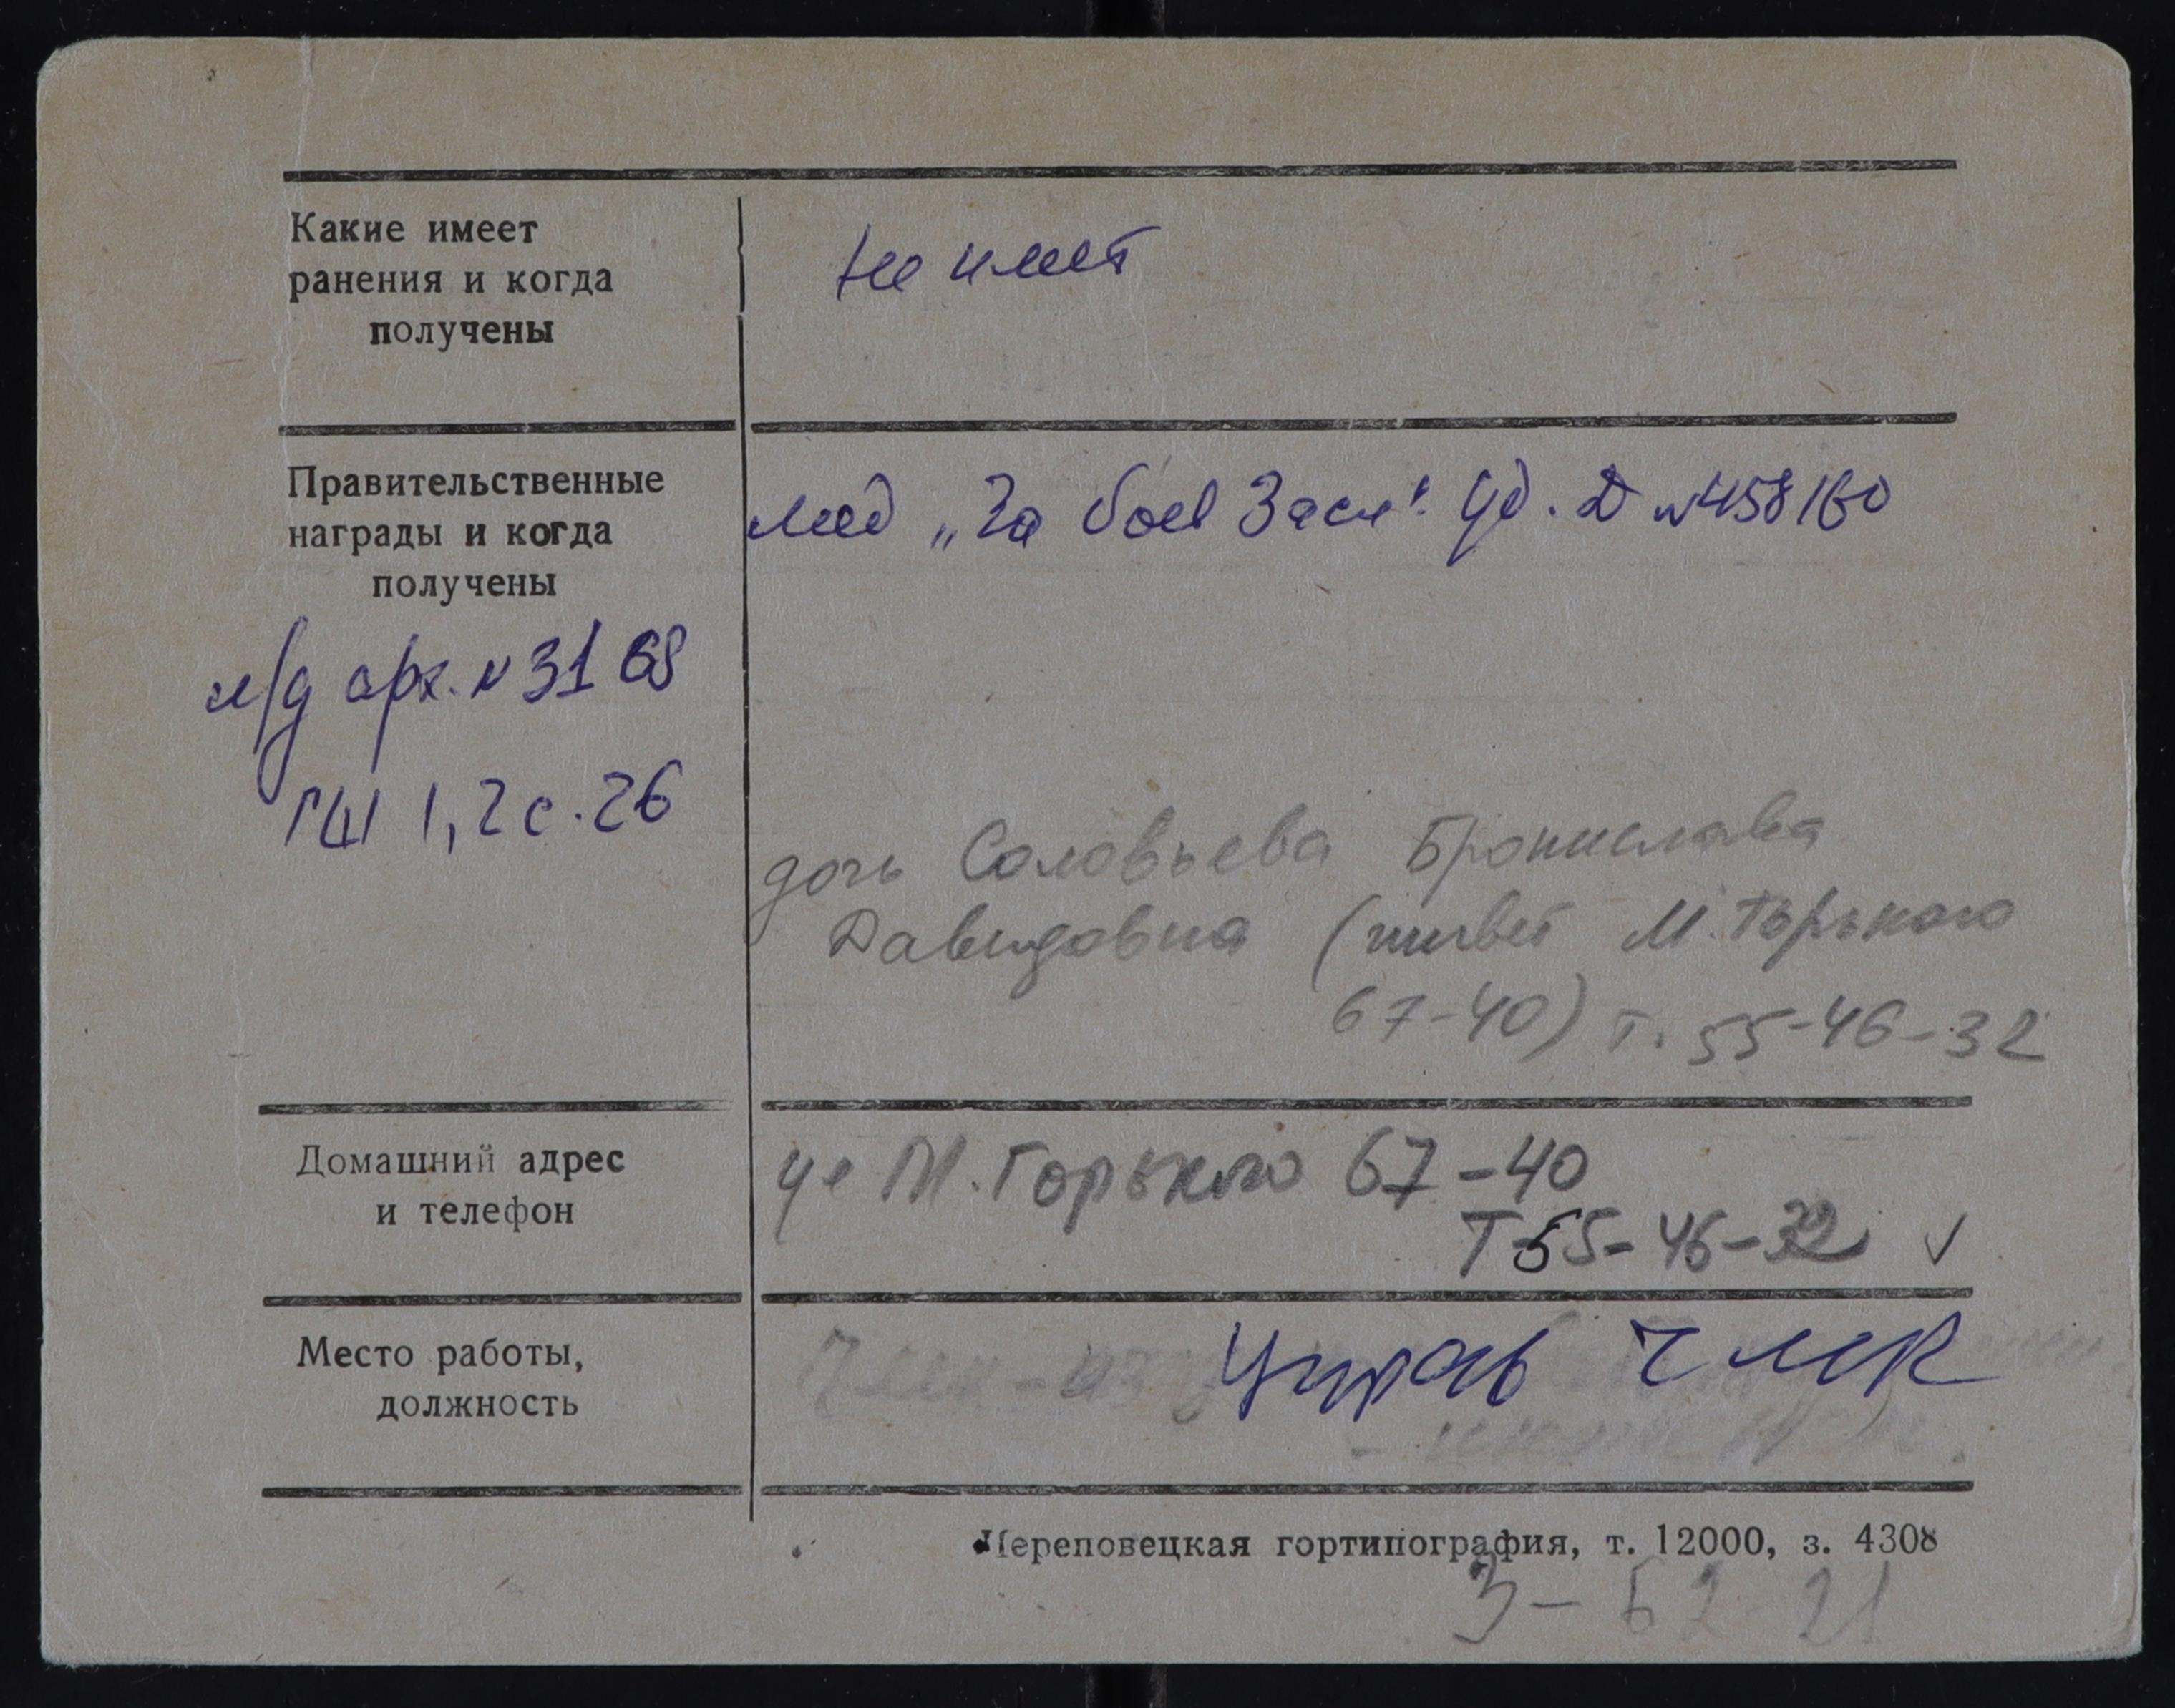 Какие имеет
ранения и когда
получены
не имеет
Правительственные
награды и когда
получены
мед „За боев Засл". Уд. Д №458160
л/д арх. № 3168
ГШ 1,2 с. 26
дочь Соловьева Бронислава
Давидовна (живет М. Горького
67-40) т. 55-46-32
Домашний адрес
и телефон
ул М. Горького 67-40
Т 55-46-32 ✓
Место работы,
должность
Управ ЧМК
Череповецкая гортипография, т. 12000, з. 4308
3-62 21